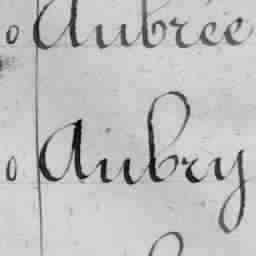 o Aubrée
o Aubry